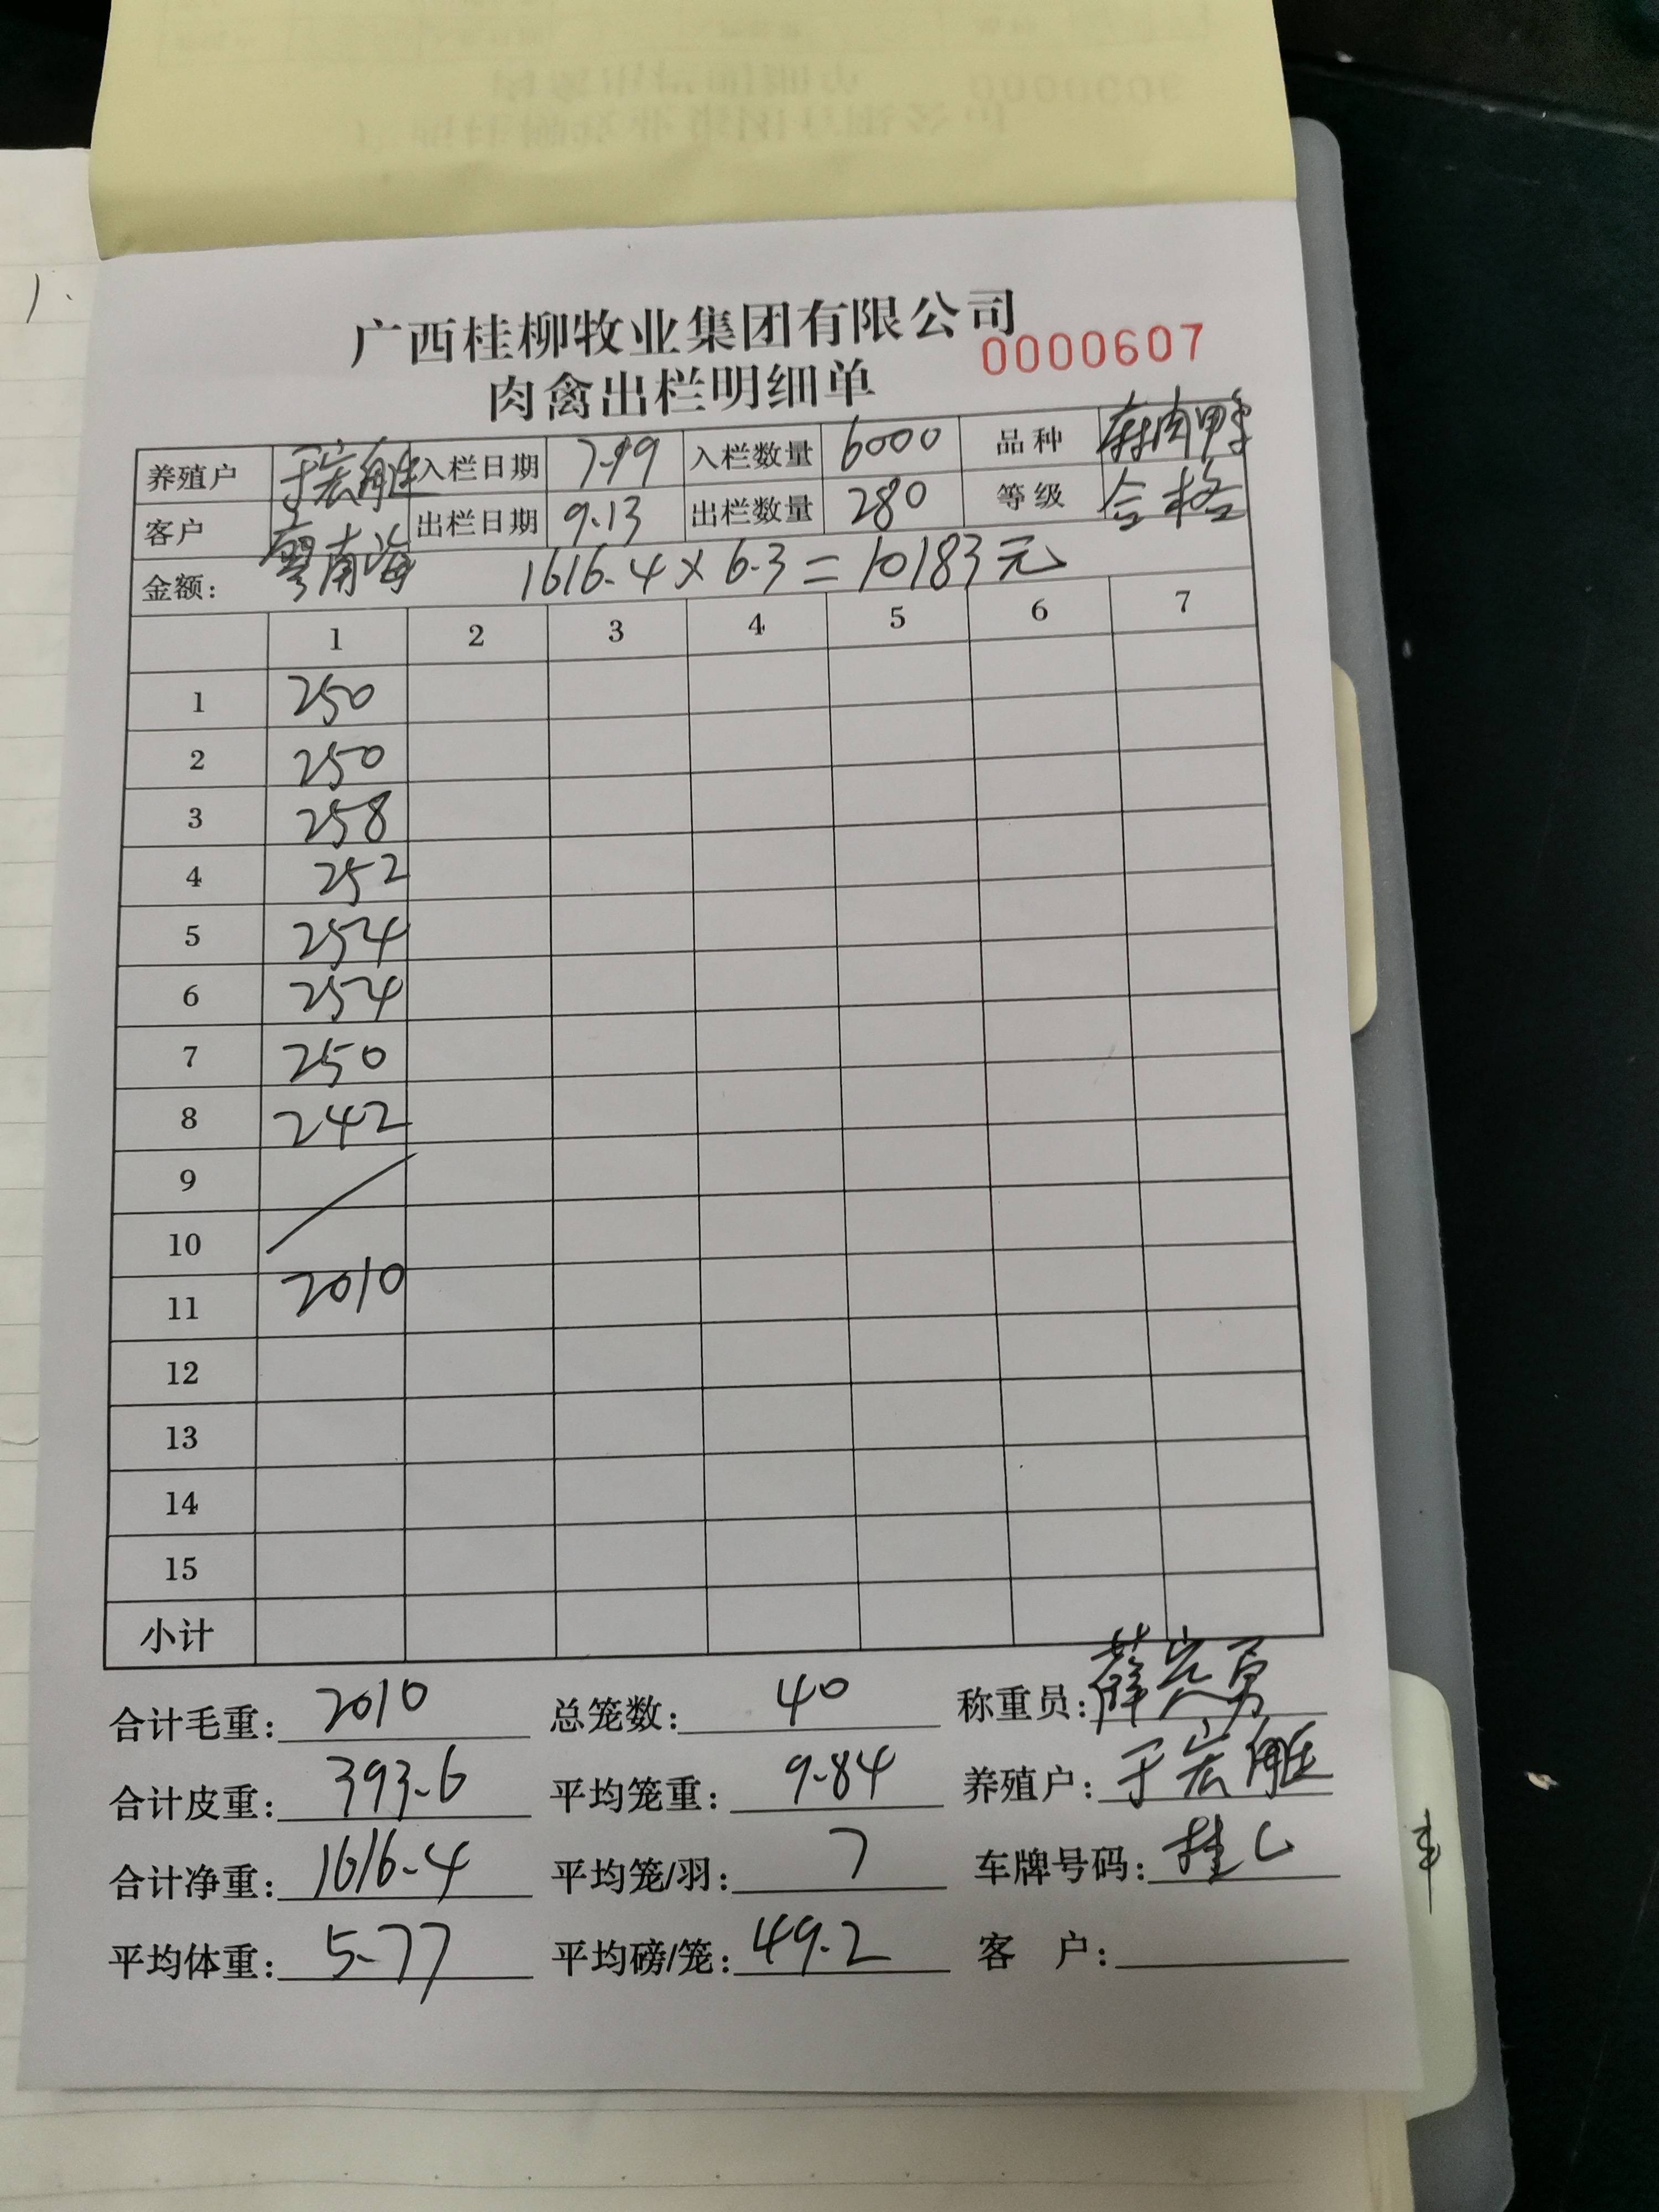 广西桂柳牧业集团有限公司
0000607
肉禽出栏明细单
养殖户 于宏胜 入栏日期 7.19 入栏数量 6000 品种 麻肉鸭
客户 廖南海 出栏日期 9.13 出栏数量 280 等级 合格
金额: 1616.4×6.3=10183元
1 2 3 4 5 6 7
1 250
2 250
3 258
4 252
5 254
6 254
7 250
8 242
9
10
11 2010
12
13
14
15
小计
合计毛重: 2010 总笼数: 40 称重员:
合计皮重: 393.6 平均笼重: 9.84 养殖户: 于宏胜
合计净重: 1616.4 平均笼/羽: 7 车牌号码: 桂C
平均体重: 5.77 平均磅/笼: 49.2 客 户: